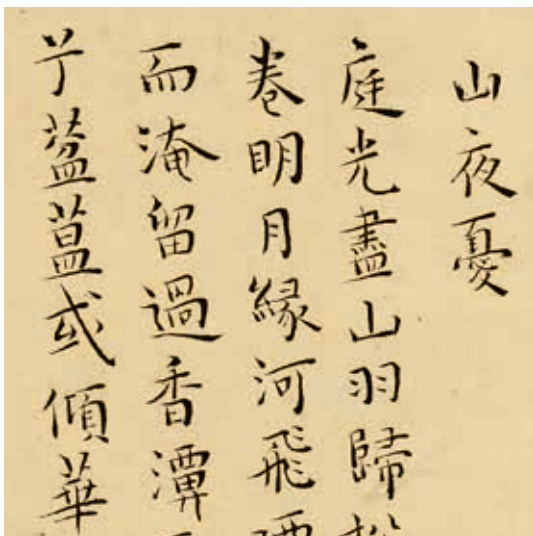 山夜憂
庭光盡山羽歸
卷明月緣河飛
而淹留過香潭
葐蒀或傾華